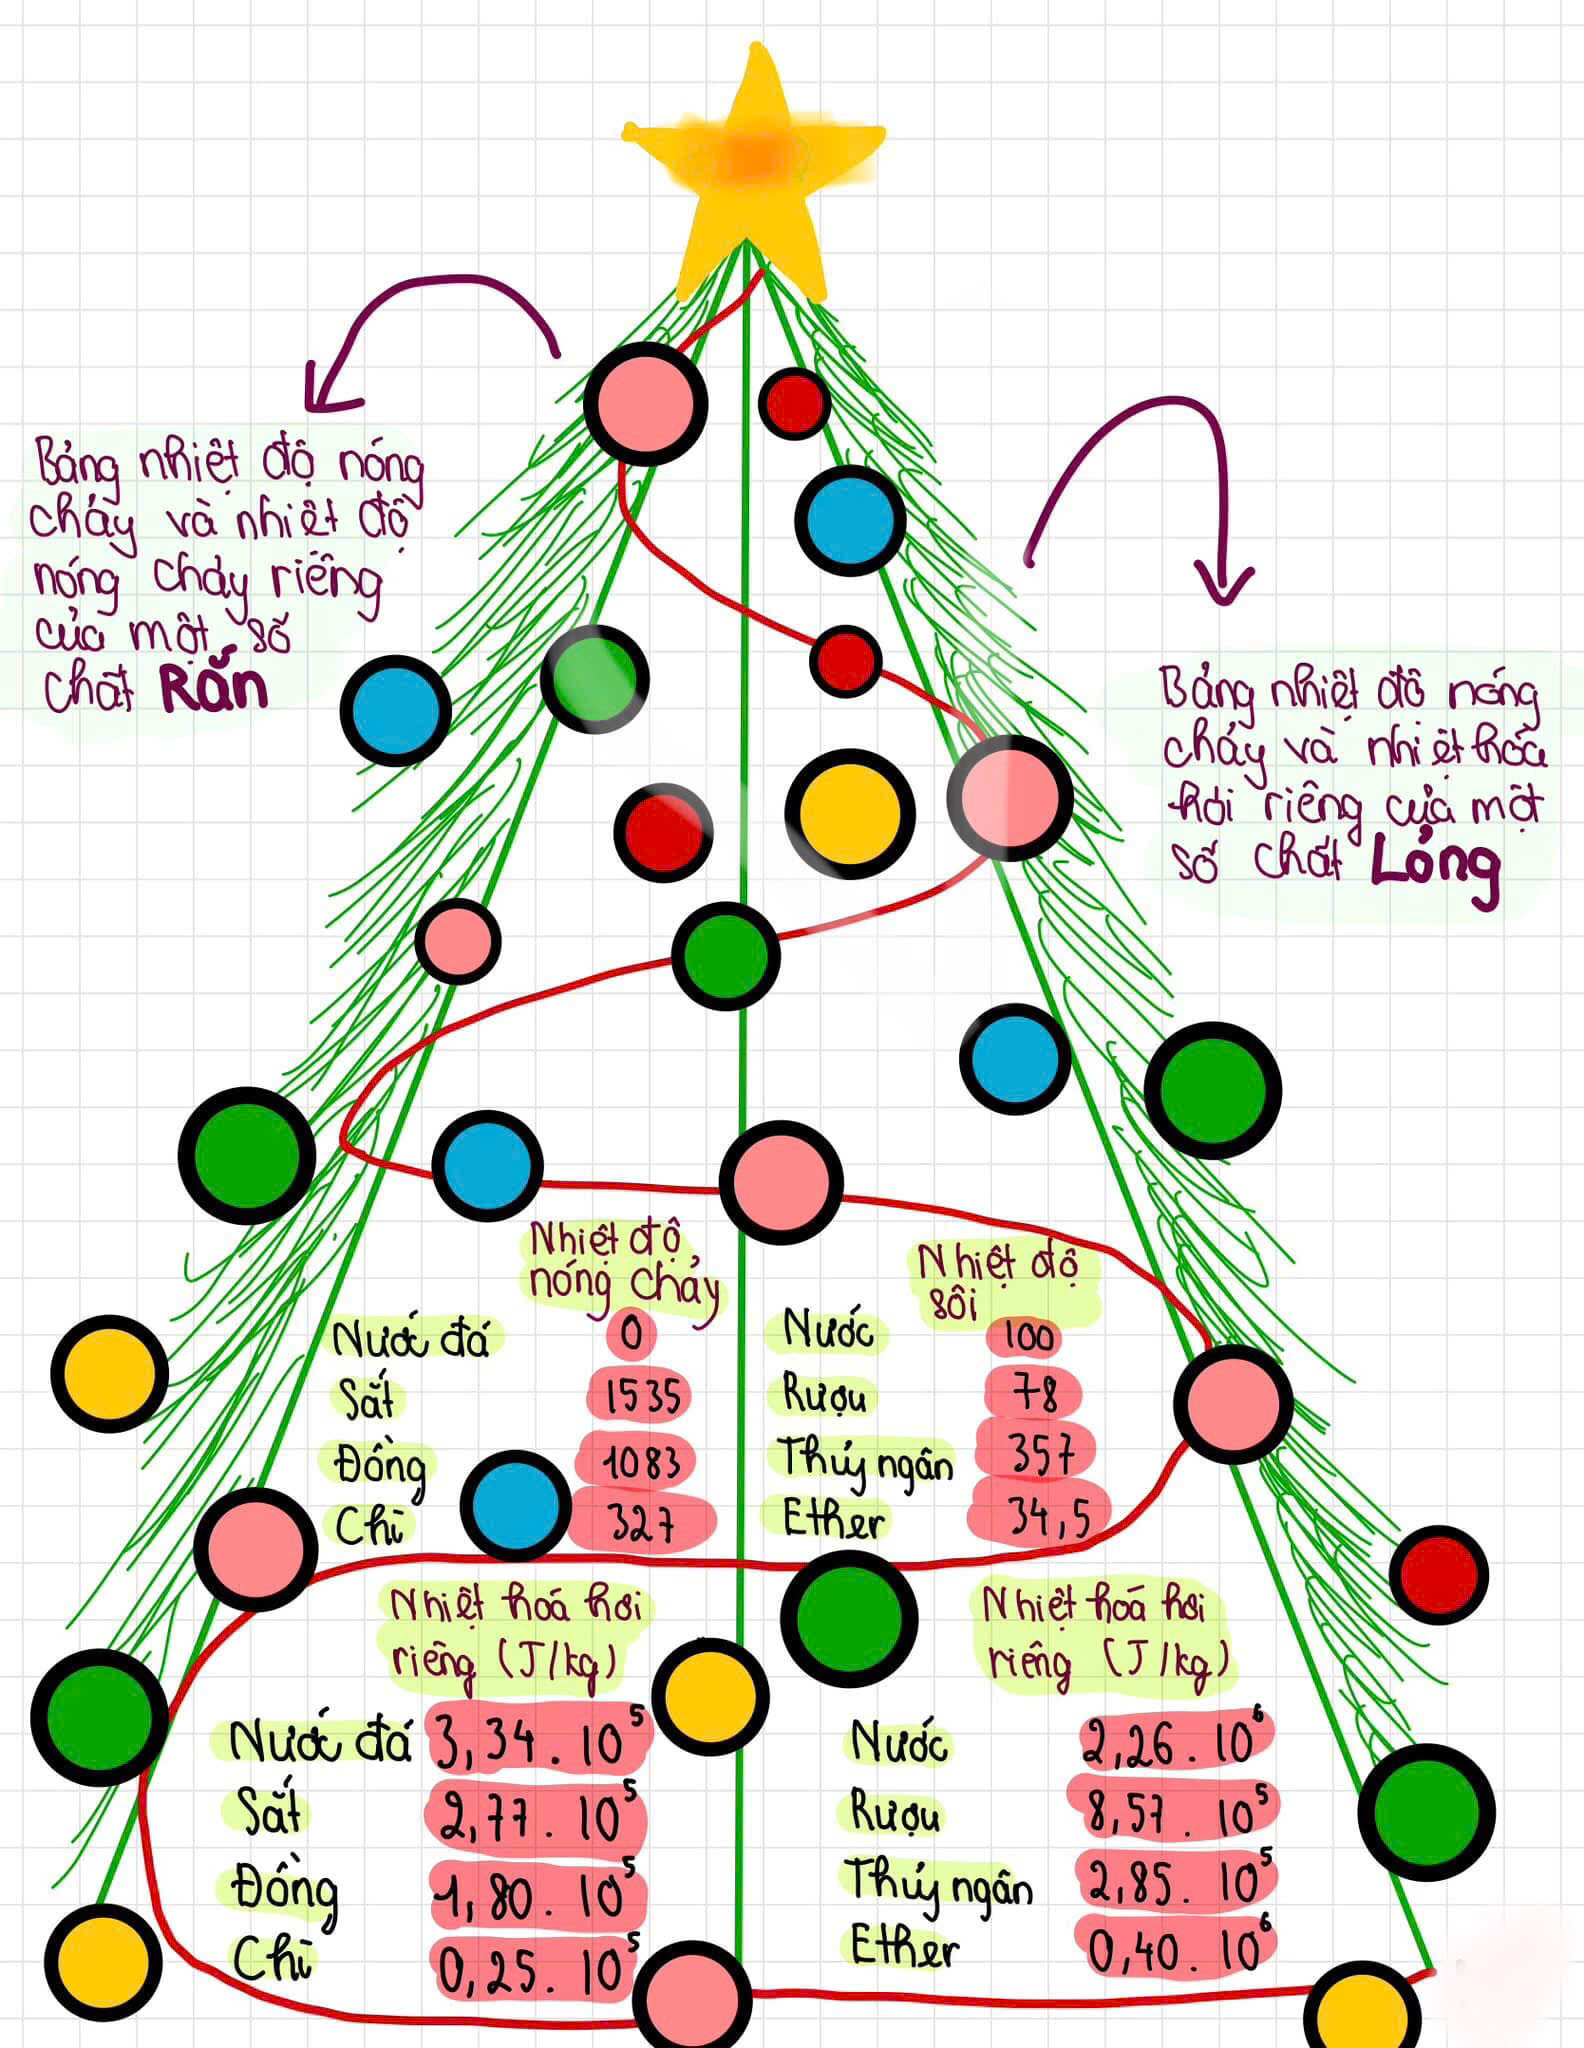 Bảng nhiệt độ nóng
chảy và nhiệt độ
nóng chảy riêng
của một số
chất Rắn
Bảng nhiệt độ nóng
chảy và nhiệt hóa
hơi riêng của một
số chất Lỏng
Nhiệt độ
nóng chảy
Nước đá 0
Sắt 1535
Đồng 1083
Chì 327
Nhiệt độ
sôi
Nước 100
Rượu 78
Thủy ngân 357
Ether 34,5
Nhiệt hoá hơi
riêng (J/kg)
Nước đá 3,34 . 10⁵
Sắt 2,77 . 10⁵
Đồng 1,80 . 10⁵
Chì 0,25 . 10⁵
Nhiệt hoá hơi
riêng (J/kg)
Nước 2,26 . 10⁶
Rượu 8,57 . 10⁵
Thủy ngân 2,85 . 10⁵
Ether 0,40 . 10⁶